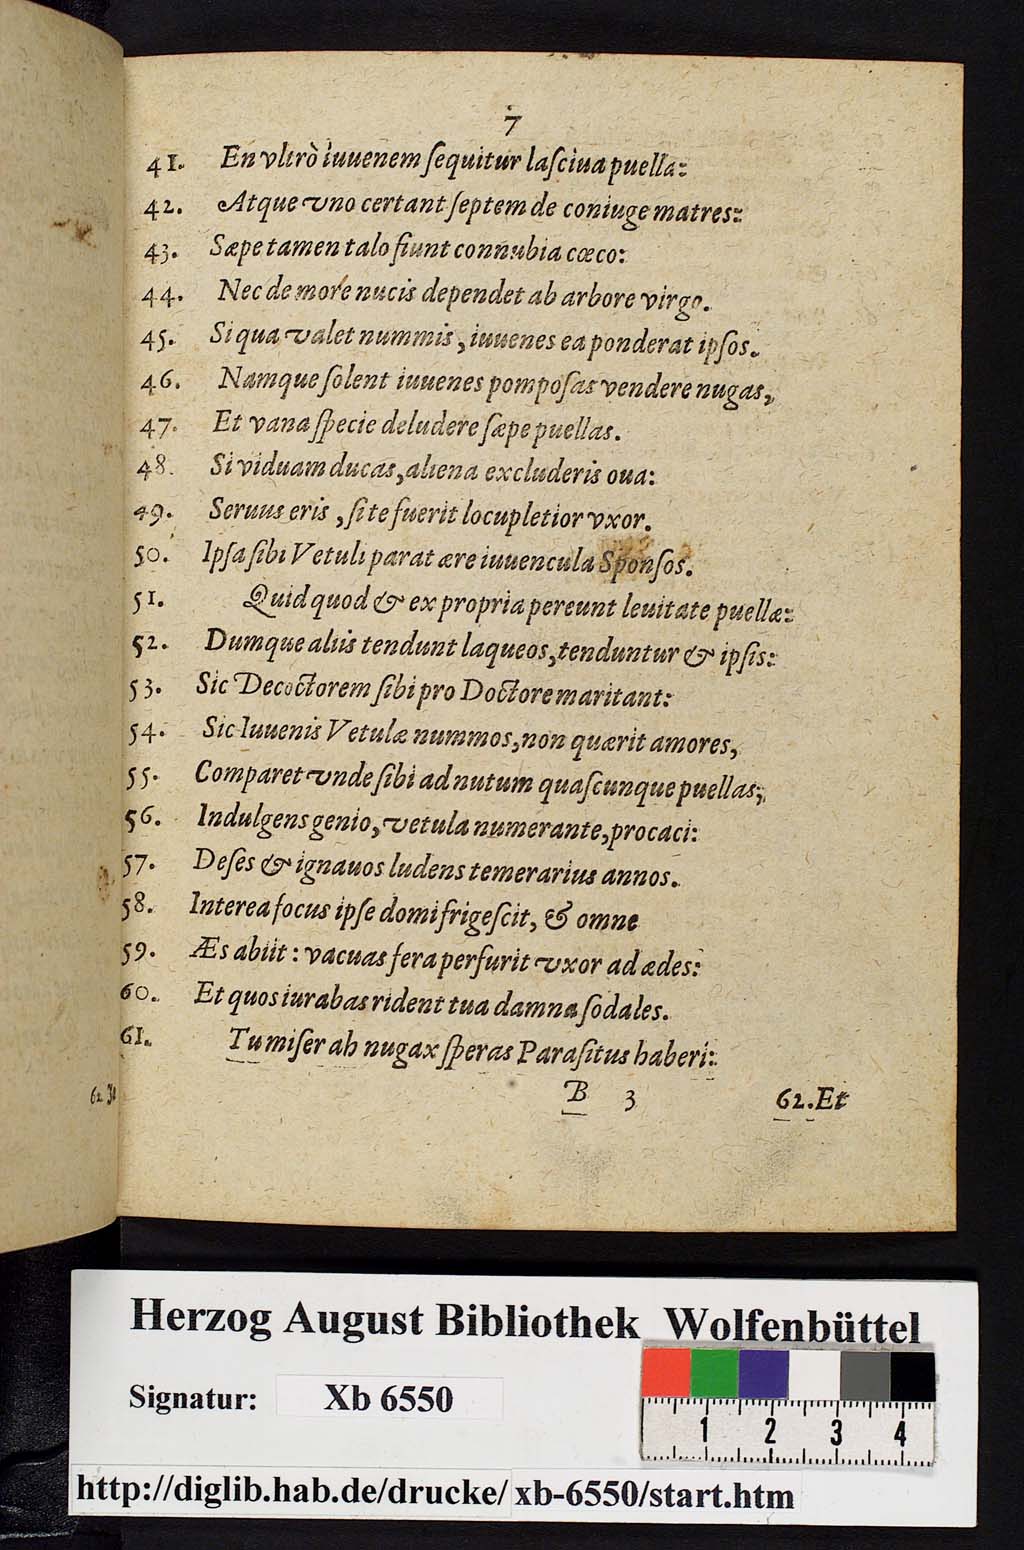 7
41. En vltrò iuuenem ſequitur laſciua puella:
42. Atque vno certant ſeptem de coniuge matres:
43. Sæpe tamen talo fiunt connubia cœco:
44. Nec de more nucis dependet ab arbore virgo.
45. Si qua valet nummis, iuuenes ea ponderat ipſos.
46. Namque ſolent iuuenes pompoſas vendere nugas,
47. Et vana ſpecie deludere ſæpe puellas.
48. Si viduam ducas, aliena excluderis oua:
49. Seruus eris, ſi te fuerit locupletior vxor.
50. Ipſa ſibi Vetuli parat ære iuuencula Sponſos.
51. Quid quod & ex propria pereunt leuitate puellæ:
52. Dumque aliis tendunt laqueos, tenduntur & ipſis:
53. Sic Decoctorem ſibi pro Doctore maritant:
54. Sic Iuuenis Vetulæ nummos, non quærit amores,
55. Comparet vnde ſibi ad nutum quaſcunque puellas,
56. Indulgens genio, vetula numerante, procaci:
57. Deſes & ignauos ludens temerarius annos.
58. Interea focus ipſe domi frigeſcit, & omne
59. Æs abiit: vacuas fera perfurit vxor ad ædes:
60. Et quos iurabas rident tua damna ſodales.
61. Tu miſer ah nugax ſperas Paraſitus haberi:
B 3 62. Et
Herzog August Bibliothek Wolfenbüttel
Signatur: Xb 6550
1 2 3 4
http://diglib.hab.de/drucke/xb-6550/start.htm